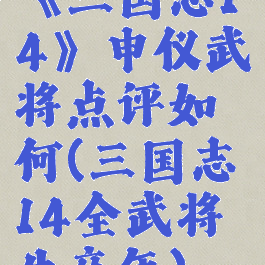 《三国志1
4》申仪武
将点评如
何(三国志
14全武将
生卒年)